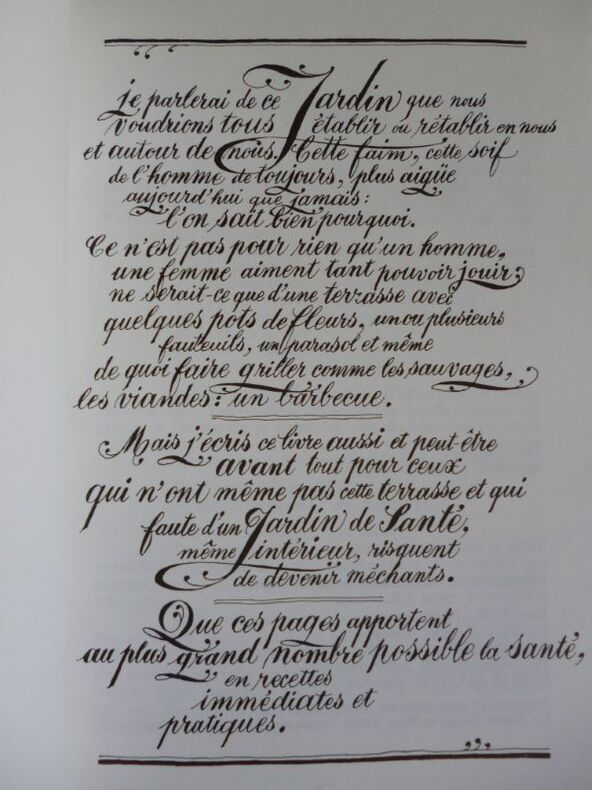 “
je parlerai de ce Jardin que nous
voudrions tous établir ou rétablir en nous
et autour de nous. Cette faim, cette soif
de l'homme de toujours, plus aigüe
aujourd'hui que jamais:
l'on sait bien pourquoi.
Ce n'est pas pour rien qu'un homme,
une femme aiment tant pouvoir jouir:
ne serait-ce que d'une terrasse avec
quelques pots de fleurs, un ou plusieurs
fauteuils, un parasol et même
de quoi faire griller comme les sauvages,
les viandes: un barbecue.
Mais j'écris ce livre aussi et peut-être
avant tout pour ceux
qui n'ont même pas cette terrasse et qui
faute d'un Jardin de Santé,
même intérieur, risquent
de devenir méchants.
Que ces pages apportent
au plus grand nombre possible la santé,
en recettes
immédiates et
pratiques.
”